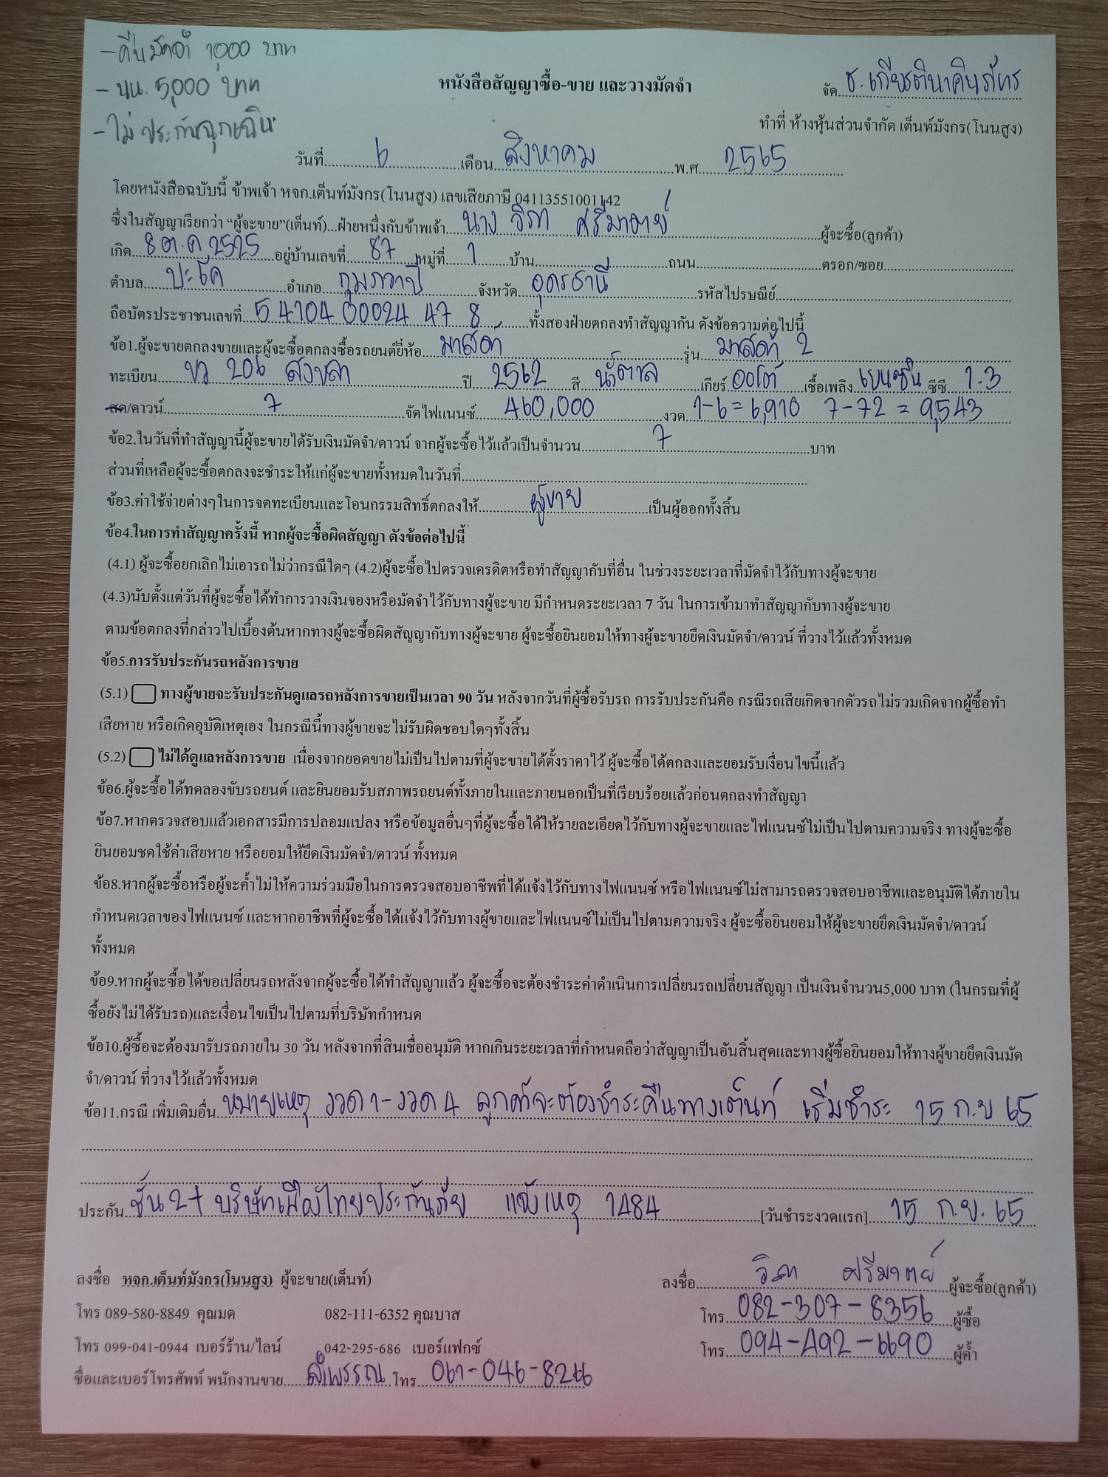 -คืนมัดจำ 1000 บาท
- นน. 5,000 บาท
-ไม่ประกันฉุกเฉิน
หนังสือสัญญาซื้อ-ขาย และวางมัดจำ
จัด ธ.เกียรตินาคินภัทร
ทำที่ ห้างหุ้นส่วนจำกัด เต็นท์มังกร(โนนสูง)
วันที่ 6 เดือน สิงหาคม พ.ศ. 2565
โดยหนังสือฉบับนี้ ข้าพเจ้า หจก.เต็นท์มังกร(โนนสูง) เลขเสียภาษี 04113551001142
ซึ่งในสัญญาเรียกว่า "ผู้จะขาย"(เต็นท์)...ฝ่ายหนึ่งกับข้าพเจ้า นาง วิภา ศรีมาตย์ ผู้จะซื้อ(ลูกค้า)
เกิด 8 ต.ค 2525 อยู่บ้านเลขที่ 87 หมู่ที่ 1 บ้าน ถนน ตรอก/ซอย
ตำบล ปะโค อำเภอ กุมภวาปี จังหวัด อุดรธานี รหัสไปรษณีย์
ถือบัตรประชาชนเลขที่ 5 4104 00024 47 8 ทั้งสองฝ่ายตกลงทำสัญญากัน ดังข้อความต่อไปนี้
ข้อ1.ผู้จะขายตกลงขายและผู้จะซื้อตกลงซื้อรถยนต์ยี่ห้อ มาสด้า รุ่น มาสด้า 2
ทะเบียน ขว 206 สงขลา ปี 2562 สี น้ำตาล เกียร์ ออโต้ เชื้อเพลิง เบนซิน ซีซี 1.3
สด/ดาวน์ 7 จัดไฟแนนซ์ 460,000 งวด 1-6=6,910 7-72=9,543
ข้อ2.ในวันที่ทำสัญญานี้ผู้จะขายได้รับเงินมัดจำ/ดาวน์ จากผู้จะซื้อไว้แล้วเป็นจำนวน 7 บาท
ส่วนที่เหลือผู้จะซื้อตกลงจะชำระให้แก่ผู้จะขายทั้งหมดในวันที่
ข้อ3.ค่าใช้จ่ายต่างๆในการจดทะเบียนและโอนกรรมสิทธิ์ตกลงให้ ผู้ขาย เป็นผู้ออกทั้งสิ้น
ข้อ4.ในการทำสัญญาครั้งนี้ หากผู้จะซื้อผิดสัญญา ดังข้อต่อไปนี้
(4.1) ผู้จะซื้อยกเลิกไม่เอารถไม่ว่ากรณีใดๆ (4.2)ผู้จะซื้อไปตรวจเครดิตหรือทำสัญญากับที่อื่น ในช่วงระยะเวลาที่มัดจำไว้กับทางผู้จะขาย
(4.3)นับตั้งแต่วันที่ผู้จะซื้อได้ทำการวางเงินจองหรือมัดจำไว้กับทางผู้จะขาย มีกำหนดระยะเวลา 7 วัน ในการเข้ามาทำสัญญากับทางผู้จะขาย
ตามข้อตกลงที่กล่าวไปเบื้องต้นหากทางผู้จะซื้อผิดสัญญากับทางผู้จะขาย ผู้จะซื้อยินยอมให้ทางผู้จะขายยึดเงินมัดจำ/ดาวน์ ที่วางไว้แล้วทั้งหมด
ข้อ5.การรับประกันรถหลังการขาย
(5.1) ทางผู้ขายจะรับประกันดูแลรถหลังการขายเป็นเวลา 90 วัน หลังจากวันที่ผู้ซื้อรับรถ การรับประกันคือ กรณีรถเสียเกิดจากตัวรถไม่รวมเกิดจากผู้ซื้อทำ
เสียหาย หรือเกิดอุบัติเหตุเอง ในกรณีนี้ทางผู้ขายจะไม่รับผิดชอบใดๆทั้งสิ้น
(5.2) ไม่ได้ดูแลหลังการขาย เนื่องจากยอดขายไม่เป็นไปตามที่ผู้จะขายได้ตั้งราคาไว้ ผู้จะซื้อได้ตกลงและยอมรับเงื่อนไขนี้แล้ว
ข้อ6.ผู้จะซื้อได้ทดลองขับรถยนต์ และยินยอมรับสภาพรถยนต์ทั้งภายในและภายนอกเป็นที่เรียบร้อยแล้วก่อนตกลงทำสัญญา
ข้อ7.หากตรวจสอบแล้วเอกสารมีการปลอมแปลง หรือข้อมูลอื่นๆที่ผู้จะซื้อได้ให้รายละเอียดไว้กับทางผู้จะขายและไฟแนนซ์ไม่เป็นไปตามความจริง ทางผู้จะซื้อ
ยินยอมชดใช้ค่าเสียหาย หรือยอมให้ยึดเงินมัดจำ/ดาวน์ ทั้งหมด
ข้อ8.หากผู้จะซื้อหรือผู้จะค้ำไม่ให้ความร่วมมือในการตรวจสอบอาชีพที่ได้แจ้งไว้กับทางไฟแนนซ์ หรือไฟแนนซ์ไม่สามารถตรวจสอบอาชีพและอนุมัติได้ภายใน
กำหนดเวลาของไฟแนนซ์ และหากอาชีพที่ผู้จะซื้อได้แจ้งไว้กับทางผู้ขายและไฟแนนซ์ไม่เป็นไปตามความจริง ผู้จะซื้อยินยอมให้ผู้จะขายยึดเงินมัดจำ/ดาวน์
ทั้งหมด
ข้อ9.หากผู้จะซื้อได้ขอเปลี่ยนรถหลังจากผู้จะซื้อได้ทำสัญญาแล้ว ผู้จะซื้อจะต้องชำระค่าดำเนินการเปลี่ยนรถเปลี่ยนสัญญา เป็นเงินจำนวน5,000 บาท (ในกรณที่ผู้
ซื้อยังไม่ได้รับรถ)และเงื่อนไขเป็นไปตามที่บริษัทกำหนด
ข้อ10.ผู้ซื้อจะต้องมารับรถภายใน 30 วัน หลังจากที่สินเชื่ออนุมัติ หากเกินระยะเวลาที่กำหนดถือว่าสัญญาเป็นอันสิ้นสุดและทางผู้ซื้อยินยอมให้ทางผู้ขายยึดเงินมัด
จำ/ดาวน์ ที่วางไว้แล้วทั้งหมด
ข้อ11.กรณี เพิ่มเติมอื่น หมายเหตุ งวด 1-งวด 4 ลูกค้าจะต้องชำระคืนทางเต็นท์ เริ่มชำระ 15 ก.ย 65
ประกัน ชั้น 2+ บริษัทเมืองไทยประกันภัย แจ้งเหตุ 1484 [วันชำระงวดแรก] 15 ก.ย. 65
ลงชื่อ หจก.เต็นท์มังกร(โนนสูง) ผู้จะขาย(เต็นท์)
ลงชื่อ วิภา ศรีมาตย์ ผู้จะซื้อ(ลูกค้า)
โทร 089-580-8849 คุณมด 082-111-6352 คุณบาส
โทร 082-307-8356 ผู้ซื้อ
โทร 099-041-0944 เบอร์ร้าน/ไลน์ 042-295-686 เบอร์แฟกซ์
โทร 094-492-6690 ผู้ค้ำ
ชื่อและเบอร์โทรศัพท์ พนักงานขาย ลำพรรณ โทร 061-046-8266